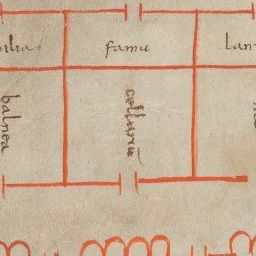 ilia
famu
lan
balnea
cellariu